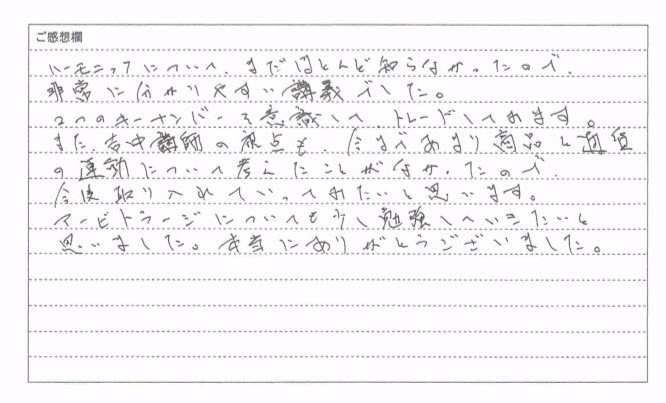 ご感想欄
ハーモニックについて、まだほとんど知らなかったので、
非常に分かりやすい講義でした。
2つのキーナンバーを意識して、トレードしてみます。
また、吉中講師の視点も、今まであまり商品と通貨
の連動について考えたことがなかったので、
今後取り入れていってみたいと思います。
アービトラージについても少し勉強していきたいと
思いました。本当にありがとうございました。